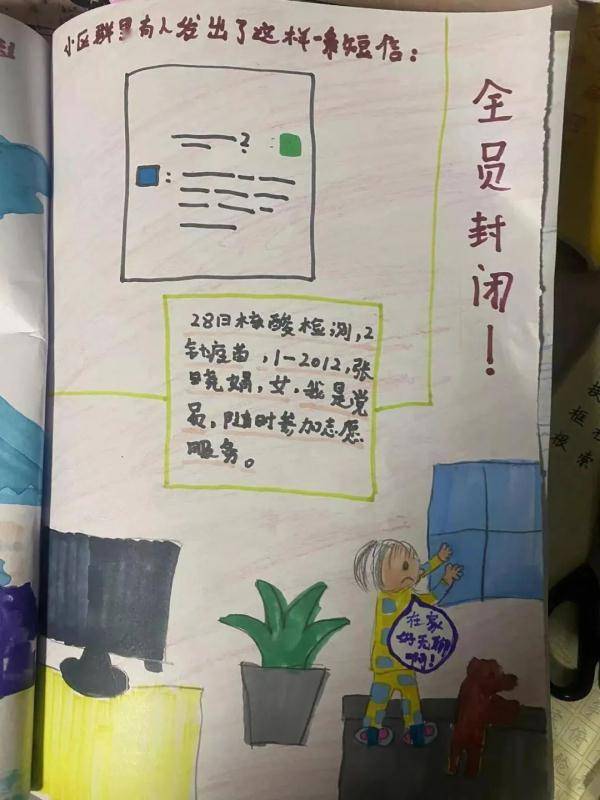 小区群里有人发出了这样一条短信：
全员封闭！
28日核酸检测，2
针疫苗，1-2012，张
晓娟，女，我是党
员，随时参加志愿
服务。
在家
好无聊
啊！